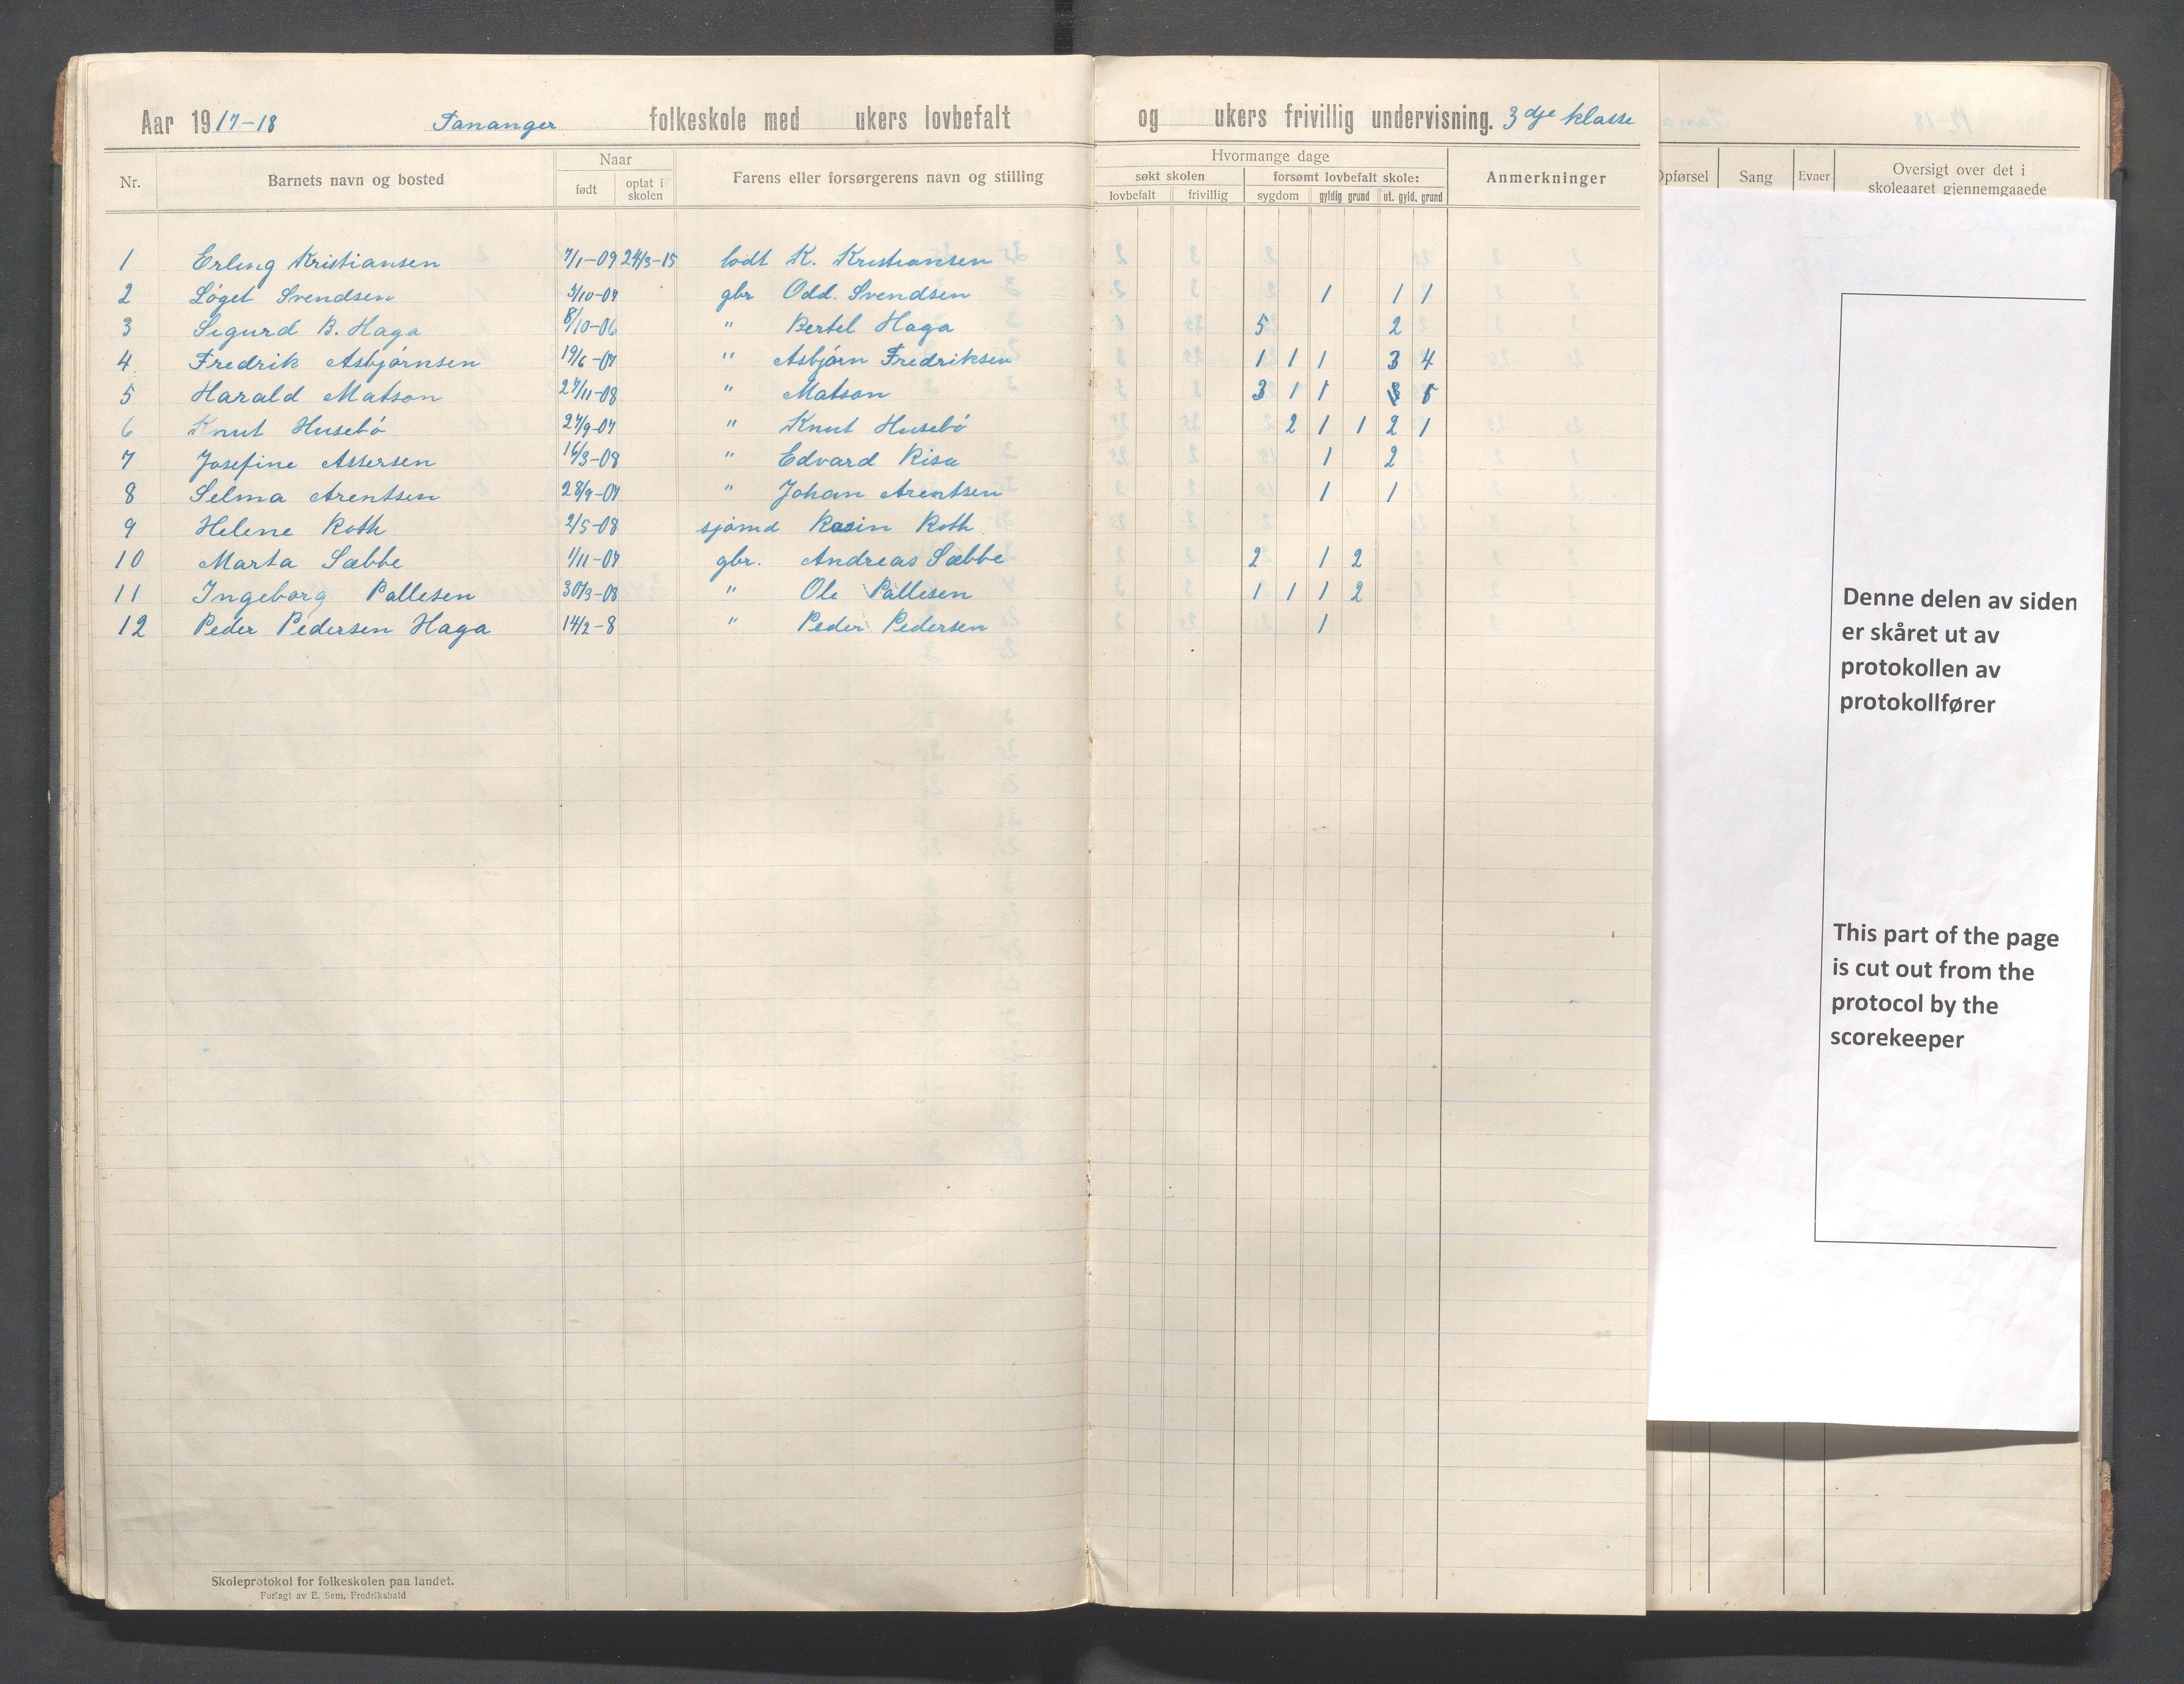 Aar 1917-18 Tananger folkeskole med ukers lovbefalt og ukers frivillig undervisning. 3dje klasse
Nr. Barnets navn og bosted Naar født optat i skolen Farens eller forsørgerens navn og stilling Hvormange dage søkt skolen lovbefalt frivillig forsømt lovbefalt skole: sygdom gyldig grund ut. gyld. grund Anmerkninger
Opførsel Sang Evner Oversigt over det i
skoleaaret gjennemgaaede
1 Erling Kristiansen 7/1-09 24/3-15 lodt K. Kristiansen
2 Løget Svendsen 3/10-07 gbr Odd. Svendsen 1 1 1
3 Sigurd B. Haga 8/10-06 " Bertel Haga 5 2
4 Fredrik Asbjørnsen 19/6-07 " Asbjørn Fredriksen 1 1 1 3 4
5 Harald Matson 27/11-08 " Matson 3 1 1 5
6 Knut Husebø 27/9-07 " Knut Husebø 2 1 1 2 1
7 Josefine Assersen 16/3-08 " Edvard Risa 1 2
8 Selma Arentsen 28/9-07 " Johan Arentsen 1 1
9 Helene Roth 2/5-08 sjømd Rasin Roth
10 Marta Sæbbe 1/11-07 gbr. Andreas Sæbbe 2 1 2
11 Ingeborg Pallesen 30/3-08 " Ole Pallesen 1 1 1 2
12 Peder Pedersen Haga 14/2-8 " Peder Pedersen 1
Skoleprotokol for folkeskolen paa landet.
Forlagt av E. Sem, Fredrikshald
Denne delen av siden
er skåret ut av
protokollen av
protokollfører
This part of the page
is cut out from the
protocol by the
scorekeeper